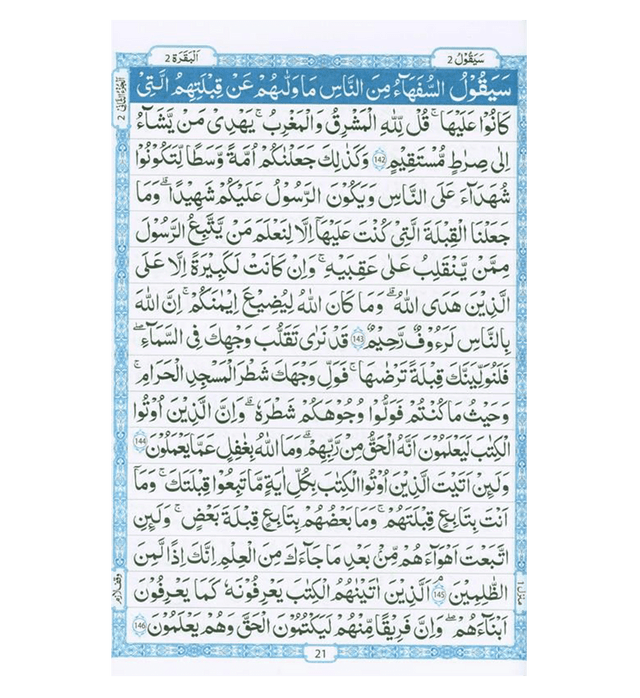 سَيَقُوْلُ 2
اَلْبَقَرَة 2
سَيَقُوْلُ السُّفَهَآءُ مِنَ النَّاسِ مَا وَلّٰىهُمْ عَنْ قِبْلَتِهِمُ الَّتِيْ
كَانُوْا عَلَيْهَا ؕ قُلْ لِّلّٰهِ الْمَشْرِقُ وَالْمَغْرِبُ ؕ يَهْدِيْ مَنْ يَّشَآءُ
اِلٰى صِرَاطٍ مُّسْتَقِيْمٍ 142 وَكَذٰلِكَ جَعَلْنٰكُمْ اُمَّةً وَّسَطًا لِّتَكُوْنُوْا
شُهَدَآءَ عَلَى النَّاسِ وَيَكُوْنَ الرَّسُوْلُ عَلَيْكُمْ شَهِيْدًا ؕ وَمَا
جَعَلْنَا الْقِبْلَةَ الَّتِيْ كُنْتَ عَلَيْهَآ اِلَّا لِنَعْلَمَ مَنْ يَّتَّبِعُ الرَّسُوْلَ
مِمَّنْ يَّنْقَلِبُ عَلٰى عَقِبَيْهِ ؕ وَاِنْ كَانَتْ لَكَبِيْرَةً اِلَّا عَلَى
الَّذِيْنَ هَدَى اللّٰهُ ؕ وَمَا كَانَ اللّٰهُ لِيُضِيْعَ اِيْمٰنَكُمْ ؕ اِنَّ اللّٰهَ
بِالنَّاسِ لَرَءُوْفٌ رَّحِيْمٌ 143 قَدْ نَرٰى تَقَلُّبَ وَجْهِكَ فِى السَّمَآءِ ۚ
فَلَنُوَلِّيَنَّكَ قِبْلَةً تَرْضٰىهَا ۪ فَوَلِّ وَجْهَكَ شَطْرَ الْمَسْجِدِ الْحَرَامِ ؕ
وَحَيْثُ مَا كُنْتُمْ فَوَلُّوْا وُجُوْهَكُمْ شَطْرَهٗ ؕ وَاِنَّ الَّذِيْنَ اُوْتُوا
الْكِتٰبَ لَيَعْلَمُوْنَ اَنَّهُ الْحَقُّ مِنْ رَّبِّهِمْ ؕ وَمَا اللّٰهُ بِغٰفِلٍ عَمَّا يَعْمَلُوْنَ 144
وَلَئِنْ اَتَيْتَ الَّذِيْنَ اُوْتُوا الْكِتٰبَ بِكُلِّ اٰيَةٍ مَّا تَبِعُوْا قِبْلَتَكَ ۚ وَمَآ
اَنْتَ بِتَابِعٍ قِبْلَتَهُمْ ۚ وَمَا بَعْضُهُمْ بِتَابِعٍ قِبْلَةَ بَعْضٍ ؕ وَلَئِنِ
اتَّبَعْتَ اَهْوَآءَهُمْ مِّنْۢ بَعْدِ مَا جَآءَكَ مِنَ الْعِلْمِ اِنَّكَ اِذًا لَّمِنَ
الظّٰلِمِيْنَ 145 اَلَّذِيْنَ اٰتَيْنٰهُمُ الْكِتٰبَ يَعْرِفُوْنَهٗ كَمَا يَعْرِفُوْنَ
اَبْنَآءَهُمْ ؕ وَاِنَّ فَرِيْقًا مِّنْهُمْ لَيَكْتُمُوْنَ الْحَقَّ وَهُمْ يَعْلَمُوْنَ 146
21
الجزء الثاني 2
وقف لازم
منزل 1